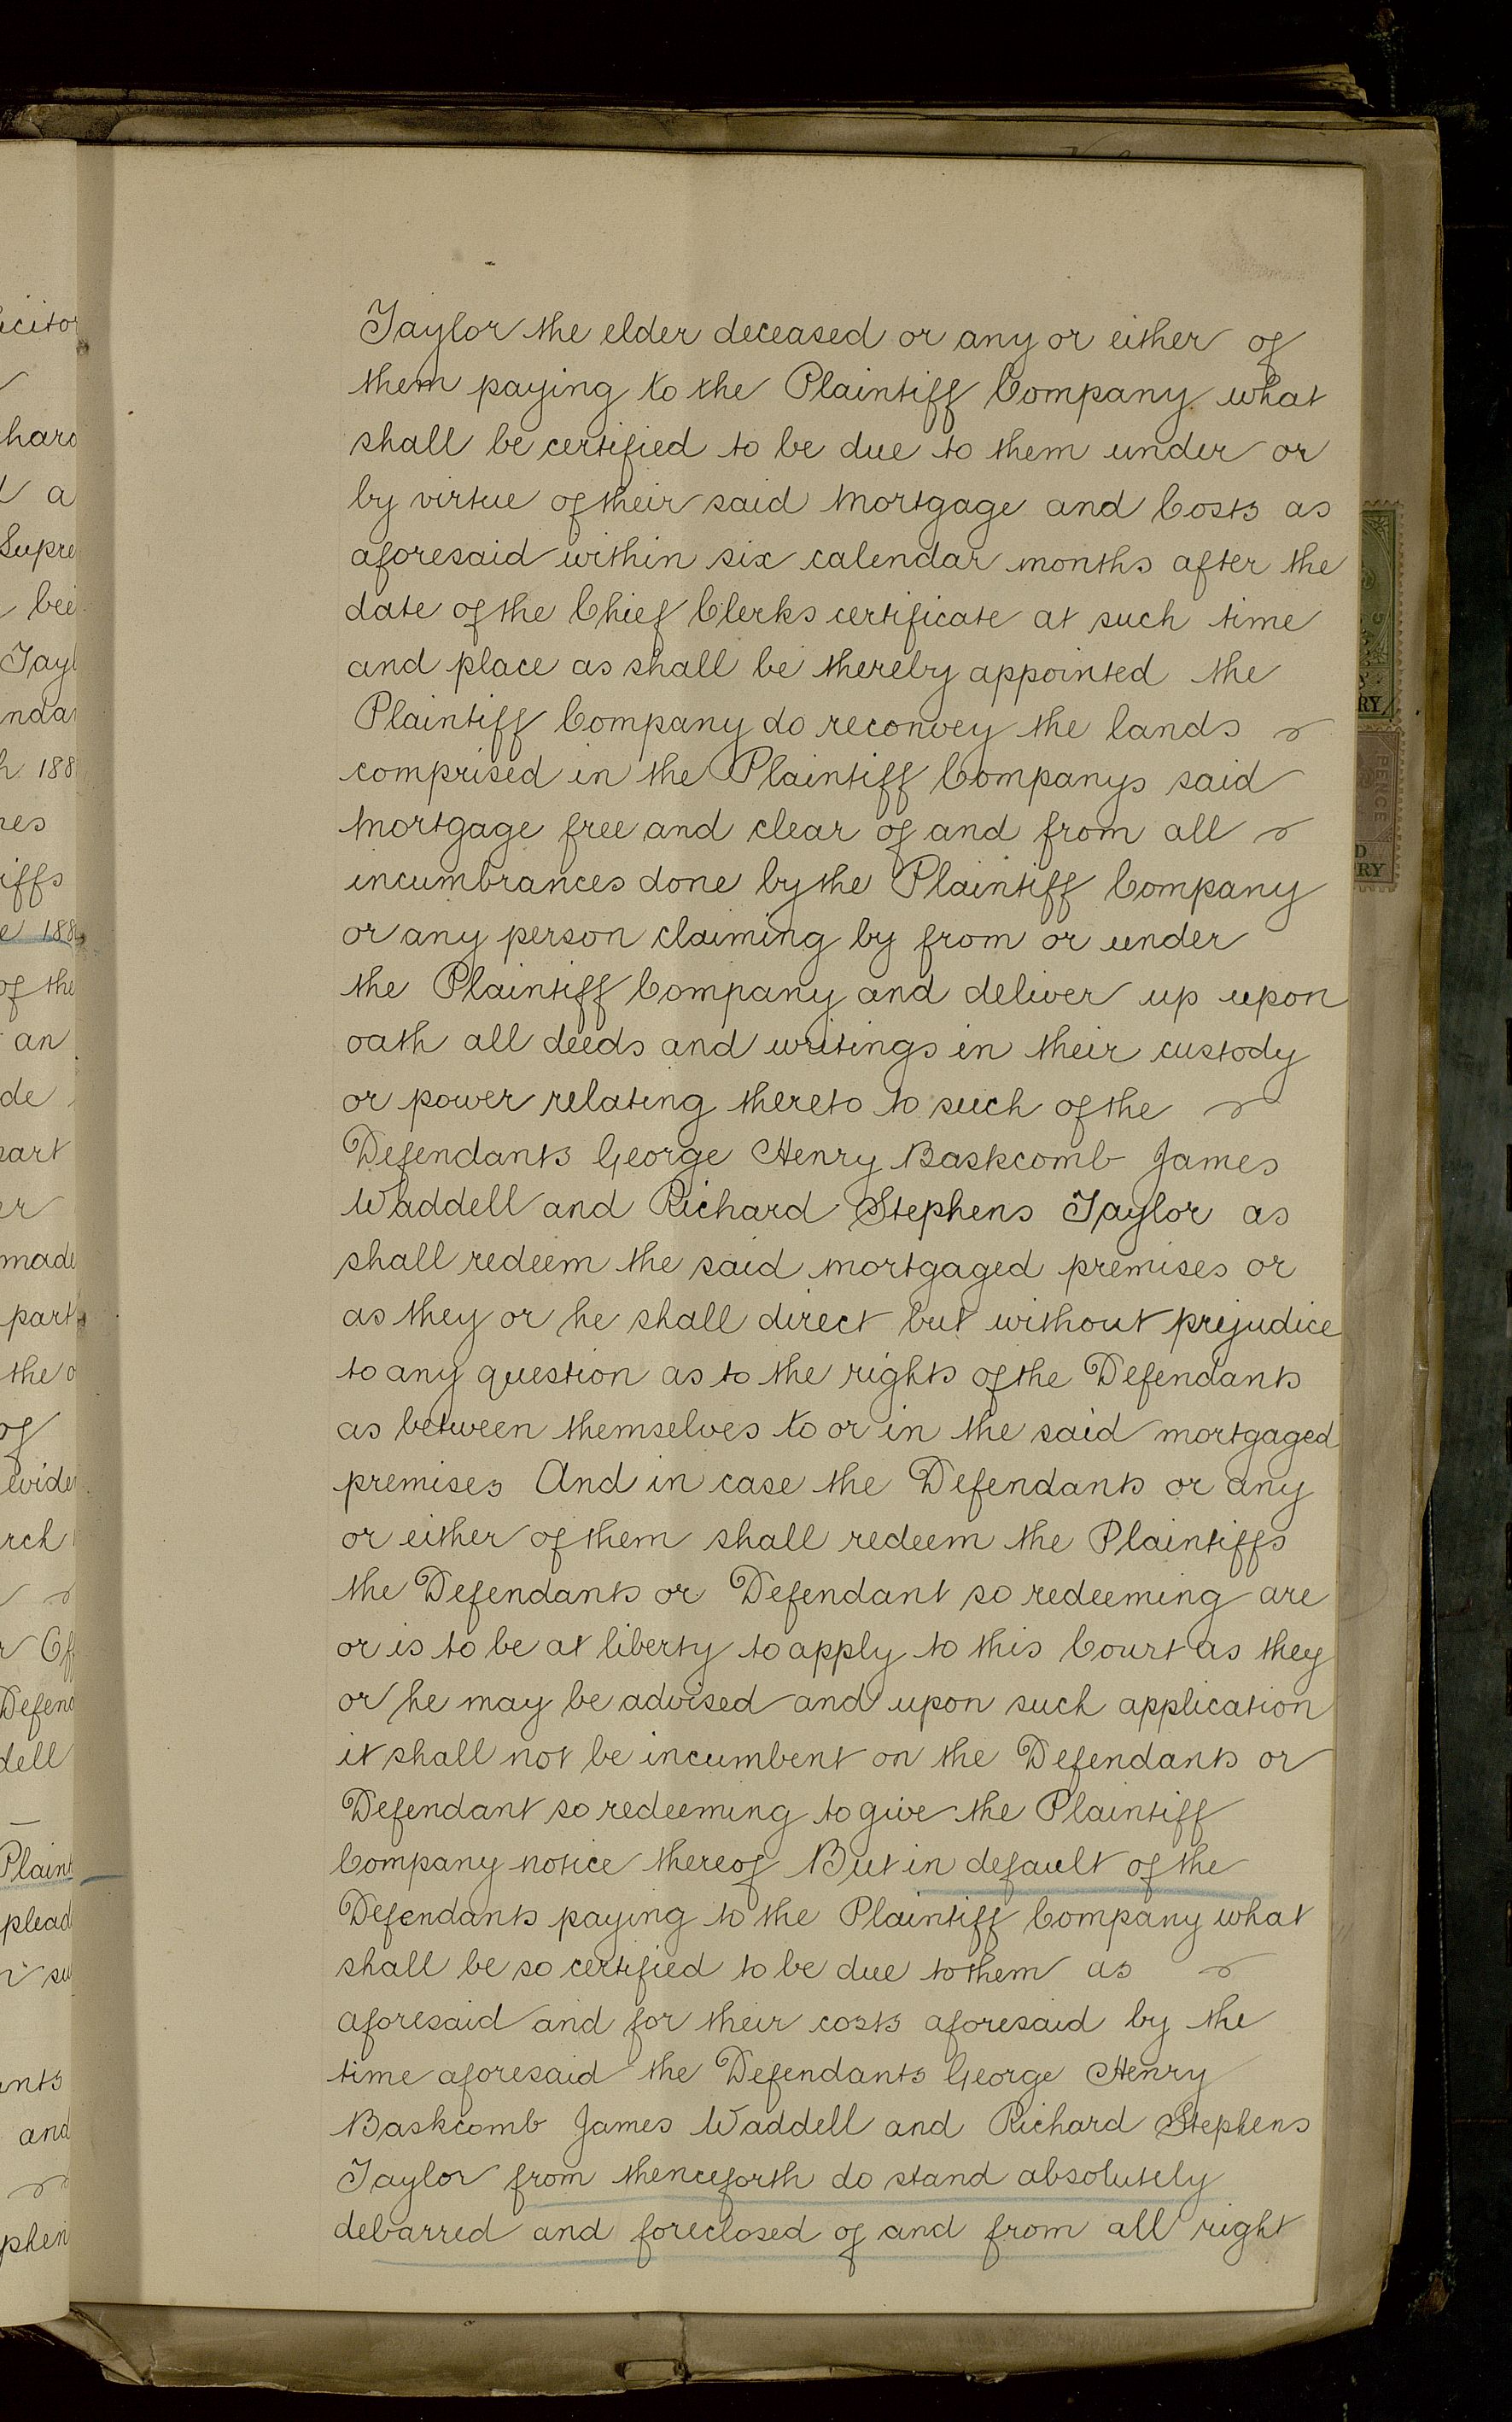 Taylor the elder deceased or any or either of
them paying to the Plaintiff Company what
shall be certified to be due to them under or
by virtue of their said Mortgage and Costs as
aforesaid within six calendar months after the
date of the Chief Clerks certificate at such time
and place as shall be thereby appointed the
Plaintiff Company do reconvey the lands
comprised in the Plaintiff Companys said
Mortgage free and clear of and from all
incumbrances done by the Plaintiff Company
or any person claiming by from or under
the Plaintiff Company and deliver up upon
oath all deeds and writings in their custody
or power relating thereto to such of the
Defendants George Henry Baskcomb James
Waddell and Richard Stephens Taylor as
shall redeem the said mortgaged premises or
as they or he shall direct but without prejudice
to any question as to the rights of the Defendants
as between themselves to or in the said mortgaged
premises And in case the Defendants or any
or either of them shall redeem the Plaintiffs
the Defendants or Defendant so redeeming are
or is to be at liberty to apply to this Court as they
or he may be advised and upon such application
it shall not be incumbent on the Defendants or
Defendant so redeeming to give the Plaintiff
Company notice thereof But in default of the
Defendants paying to the Plaintiff Company what
shall be so certified to be due to them as
aforesaid and for their costs aforesaid by the
time aforesaid the Defendants George Henry
Baskcomb James Waddell and Richard Stephens
Taylor from thenceforth do stand absolutely
debarred and foreclosed of and from all right
PENCE